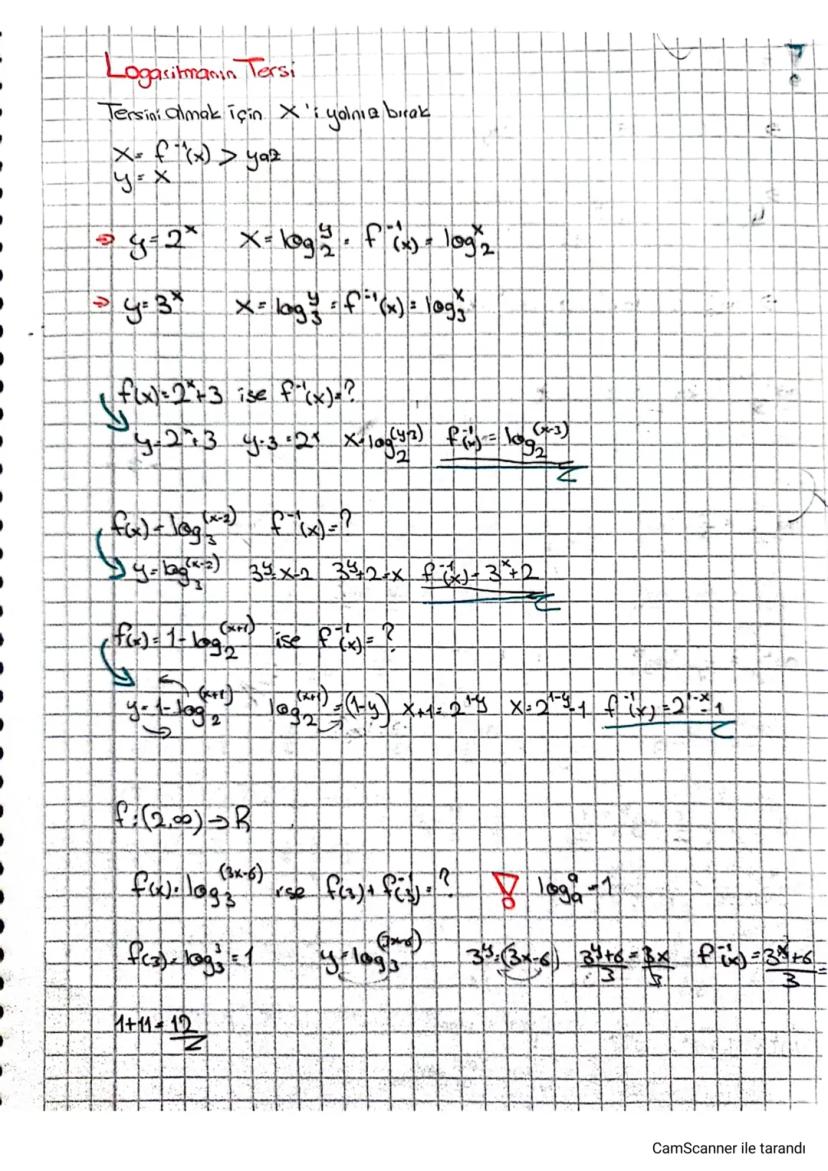 Logaritmanın Tersi
Tersini almak için x'i yalnız bırak
x = f⁻¹(x) > yaz
y = x
⇒ y = 2ˣ x = log₂ʸ = f⁻¹(x) = log₂ˣ
⇒ y = 3ˣ x = log₃ʸ = f⁻¹(x) = log₃ˣ
f(x) = 2ˣ+3 ise f⁻¹(x) = ?
y = 2ˣ+3 y-3 = 2ˣ x = log₂^(y-3) f⁻¹(x) = log₂^(x-3)
f(x) = log₃^(x-2) f⁻¹(x) = ?
y = log₃^(x-2) 3ʸ = x-2 3ʸ+2 = x f⁻¹(x) = 3ˣ+2
f(x) = 1-log₂^(x+1) ise f⁻¹(x) = ?
y = 1-log₂^(x+1) log₂^(x+1) = (1-y) x+1 = 2^(1-y) x = 2^(1-y)-1 f⁻¹(x) = 2^(1-x)-1
f:(2,∞) → R
f(x) = log₃^(3x-6) ise f(3) + f⁻¹(3) = ? ! logₐᵃ = 1
f(3) = log₃³ = 1 y = log₃^(3x-6) 3ʸ = (3x-6) 3ʸ+6/3 = 3x/3 f⁻¹(x) = 3ˣ+6/3 =
1+11 = 12
CamScanner ile tarandı